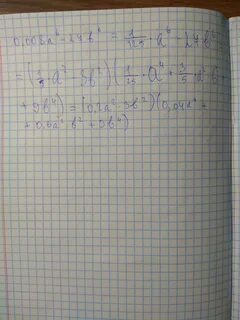 0,008a⁶ - 27b⁶ = 1/125 · a⁶ - 27b⁶ =
= (1/5 · a² - 3b²)(1/25 · a⁴ + 3/5 · a² b² +
+ 9b⁴) = (0,2a² - 3b²)(0,04a⁴ +
+ 0,6a² b² + 9b⁴)